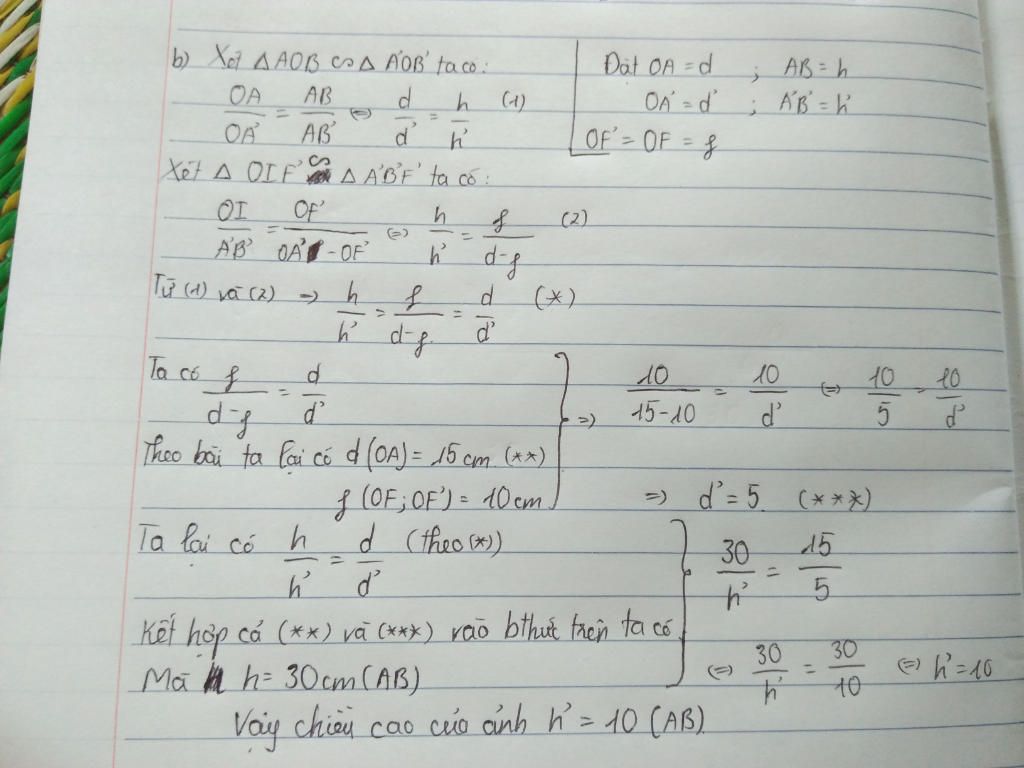 b) Xét △AOB ∽ △A'OB' ta có:
OA/OA' = AB/AB' ⇔ d/d' = h/h' (1)
Đặt OA = d ; AB = h
OA' = d' ; A'B' = h'
OF' = OF = f
Xét △ OIF' ∽ △ A'B'F' ta có:
OI/A'B' = OF'/OA' - OF' ⇔ h/h' = f/d-f (2)
Từ (1) và (2) ⇒ h/h' = f/d-f = d/d' (*)
Ta có f/d-f = d/d'
Theo bài ta lại có d(OA) = 15cm (**)
f(OF; OF') = 10cm
⇒ 10/15-10 = 10/d' ⇔ 10/5 = 10/d'
⇒ d' = 5 (***)
Ta lại có h/h' = d/d' (theo(*))
Kết hợp cả (**) và (***) vào bthức trên ta có
Mà h = 30cm (AB)
30/h' = 15/5
⇔ 30/h' = 30/10 ⇔ h' = 10
Vậy chiều cao của ảnh h' = 10 (AB)